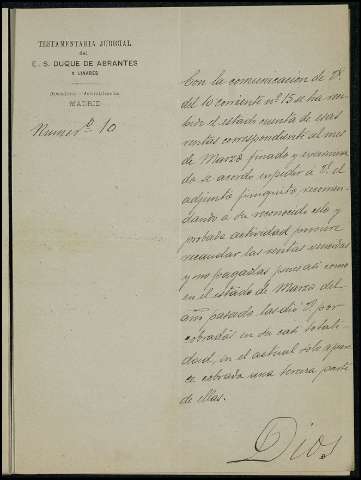 TESTAMENTARIA JUDICIAL
del
E. S. DUQUE DE ABRANTES
Y LINARES
MADRID
Numero 10
Con la comunicacion de V.
del 10 corriente nº 15 se ha reci
bido el estado cuenta de esas
rentas correspondiente al mes
de Marzo finado y examina
do se acordó expedir a V. el
adjunto finiquito recomen
dando a su reconocido celo y
probada actividad procure
recaudar las rentas vencidas
y no pagadas, pues asi como
en el estado de Marzo del
año pasado las dió V. por
cobradas en su casi totali
dad, en el actual solo apare
ce cobrada una tercera parte
de ellas.
Dios